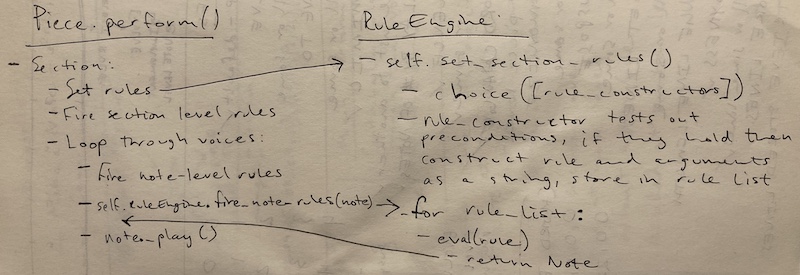 Piece.perform()
- Section:
- Set rules
- Fire section level rules
- Loop through voices:
- Fire note-level rules
- self.ruleEngine.fire_note_rules(note)
- note.play()
RuleEngine:
- self.set_section_rules()
- choice([rule_constructors])
- rule_constructor tests out
preconditions, if they hold then
construct rule and arguments
as a string, store in rule list
- for rule_list:
- eval(rule)
- return Note